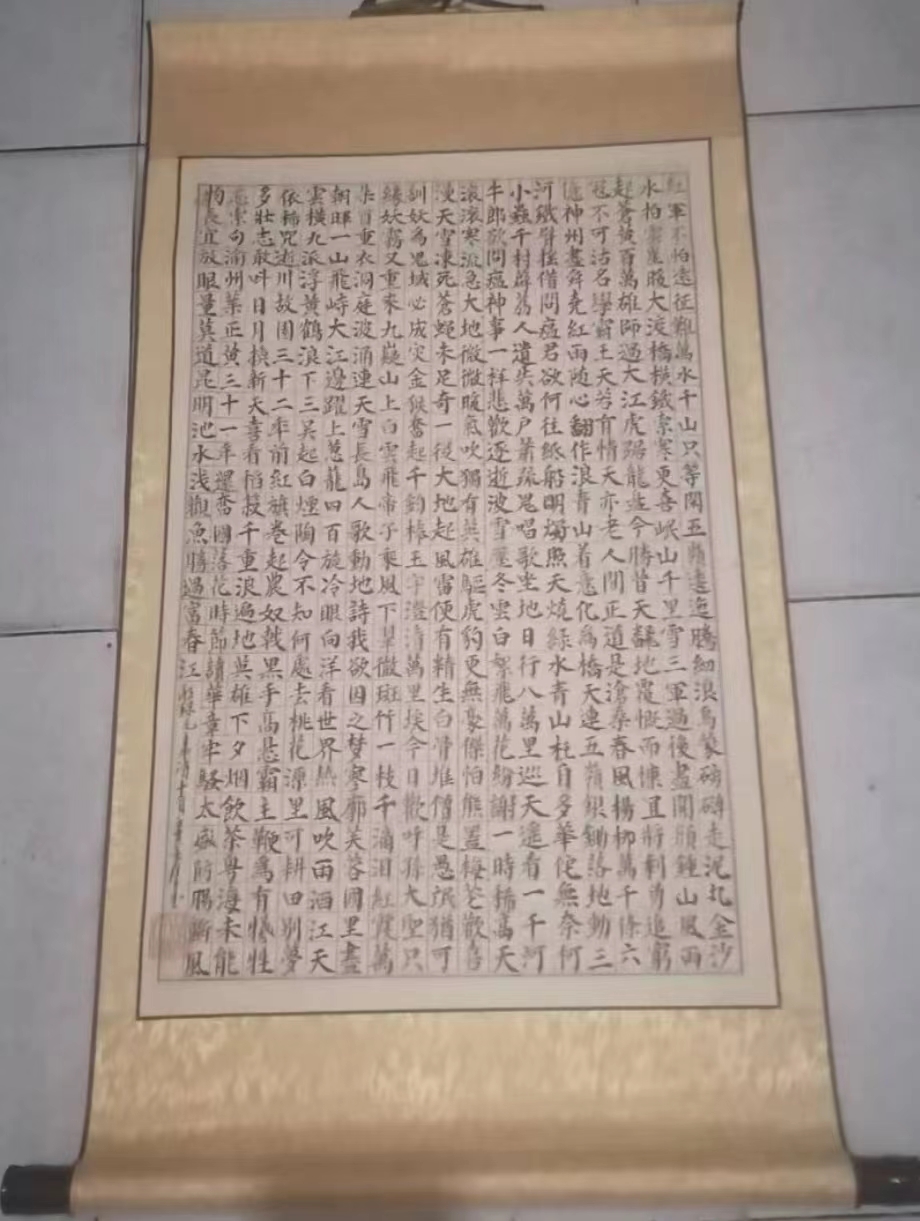 紅軍不怕遠征難萬水千山只等閑五嶺逶迤騰細浪烏蒙磅礴走泥丸金沙
水拍雲崖暖大渡橋橫鐵索寒更喜岷山千里雪三軍過後盡開顏鍾山風雨
起蒼黃百萬雄師過大江虎踞龍盤今勝昔天翻地覆慨而慷宜將剩勇追窮
寇不可沽名學霸王天若有情天亦老人間正道是滄桑春風楊柳萬千條六
億神州盡舜堯紅雨随心翻作浪青山着意化為橋天連五嶺銀鋤落地動三
河鐵臂搖借問瘟君欲何往紙船明燭照天燒綠水青山枉自多華佗無奈何
小蟲千村薜荔人遺矢萬户蕭疏鬼唱歌坐地日行八萬里巡天遥看一千河
牛郎欲問瘟神事一祥悲歡逐逝波雪壓冬雲白絮飛萬花紛謝一時稀高天
滾滾寒流急大地微微暖氣吹獨有英雄驅虎豹更無豪傑怕熊羆梅花歡喜
漫天雪凍死蒼蠅未足奇一從大地起風雷便有精生白骨堆僧是愚氓猶可
訓妖為鬼蜮必成災金猴奮起千鈞棒玉宇澄清萬里埃今日歡呼孫大聖只
緣妖霧又重來九嶷山上白雲飛帝子乘風下翠微斑竹一枝千滴泪紅霞萬
朵百重衣洞庭波涌連天雪長島人歌動地詩我欲因之梦寥廓芙蓉國里盡
朝暉一山飛峙大江邊躍上葱龍四百旋冷眼向洋看世界热風吹雨洒江天
雲橫九派浮黃鶴浪下三吴起白煙陶令不知何處去桃花源里可耕田別夢
依稀咒逝川故園三十二年前紅旗卷起農奴戟黑手高懸霸主鞭為有犧牲
多壯志敢叫日月換新天喜看稻菽千重浪遍地英雄下夕烟飲茶粵海未能
忘索句渝州葉正黃三十一年還舊國落花時節讀華章牢騷太盛防腸斷風
物長宜放眼量莫道昆明池水浅觀魚勝過富春江